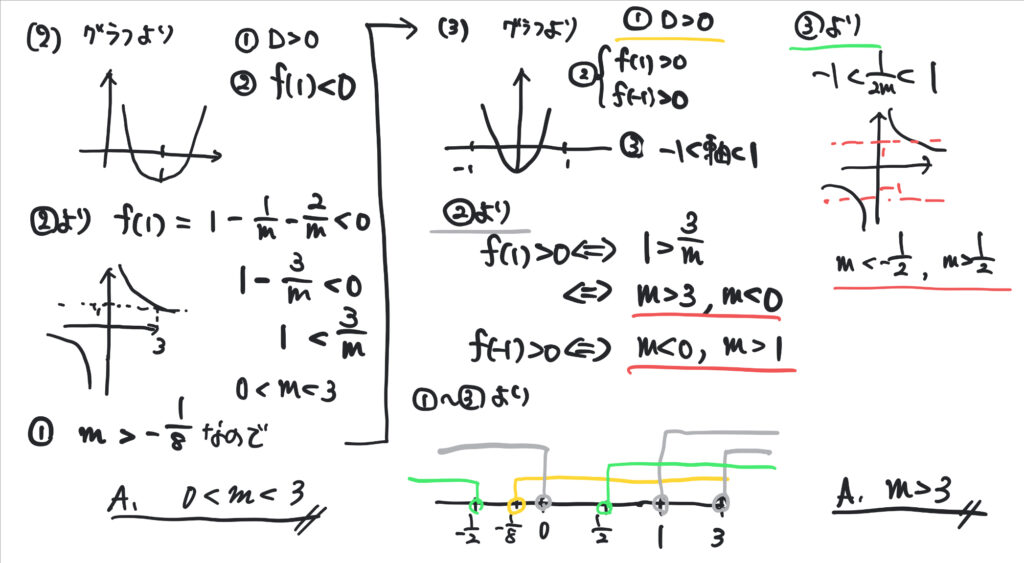 (2) グラフより
① D>0
② f(1)<0
②より f(1) = 1 - 1/m - 2/m < 0
1 - 3/m < 0
1 < 3/m
0 < m < 3
1
3
① m > -1/8 なので
A. 0 < m < 3
(3) グラフより
① D>0
② { f(1)>0
f(-1)>0
③ -1<軸<1
-1
1
②より
f(1)>0 ⇔ 1 > 3/m
⇔ m>3, m<0
f(-1)>0 ⇔ m<0, m>1
①~③より
-1/2 -1/8 0 1/2 1 3
③より
-1 < 1/2m < 1
1
-1
m < -1/2, m > 1/2
A. m>3